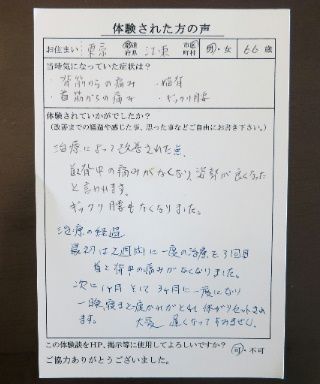 体験された方の声
お住まい: 東京 都道府県 江東 市区町村 男・女 66歳
当時気になっていた症状は?
・背筋からの痛み ・腰
・首筋からの痛み ・ギックリ腰
体験されていかがでしたか?
(改善までの経過や感じた事、思った事などご自由にお書き下さい。)
治療によって改善された点、
首背中の痛みがなくなり、姿勢が良くなった
と言われます。
ギックリ腰もなくなりました。
治療の経過
最初は2週間に一度の治療を3回目
首と背中の痛みがなくなりました。
次に1ヶ月 そして3ヶ月に一度になり
一晩寝ると疲れがとれ 体がリセットされ
ます。 大変 遅くなってすみません。
この体験談をHP、掲示等に使用してよろしいですか?
可・不可
ご協力ありがとうございました。